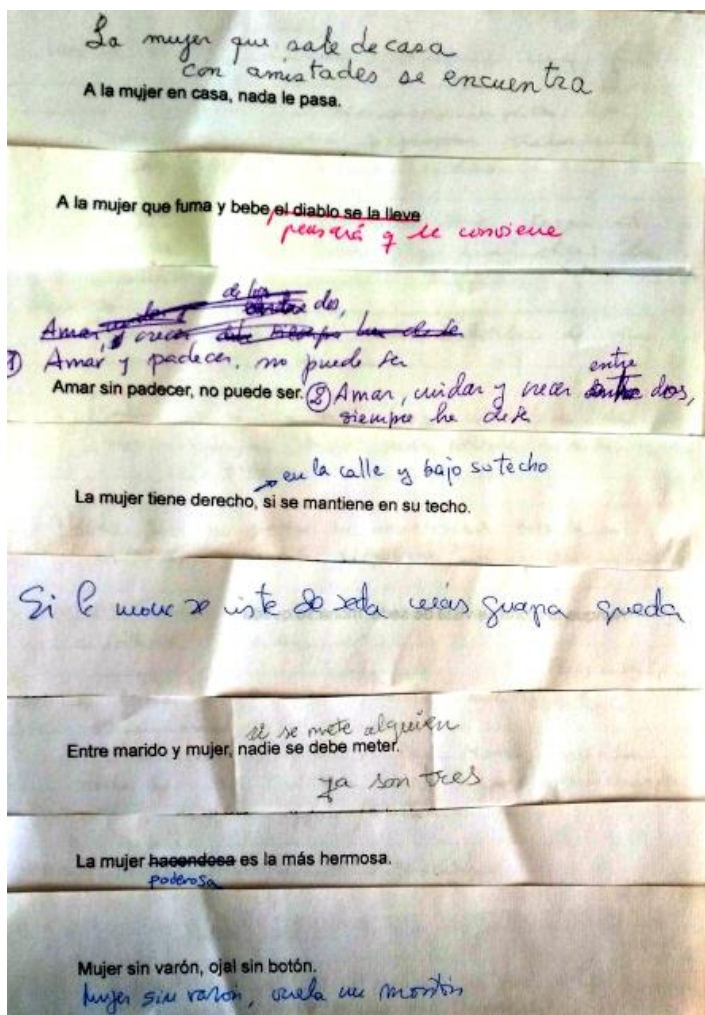 La mujer que sale de casa
con amistades se encuentra
A la mujer en casa, nada le pasa.
A la mujer que fuma y bebe el diablo se la lleve
pensará q le conviene
de los
dos,
Amar y crecer
1) Amar y padecer, no puede ser
entre
Amar sin padecer, no puede ser. 2) Amar, cuidar y crecer dos,
siempre ha de ser
en la calle y bajo su techo
La mujer tiene derecho, si se mantiene en su techo.
Si la mona se viste de seda más guapa queda
si se mete alguien
Entre marido y mujer, nadie se debe meter.
ya son tres
La mujer hacendosa es la más hermosa.
poderosa
Mujer sin varón, ojal sin botón.
Mujer sin varón, vuela un montón